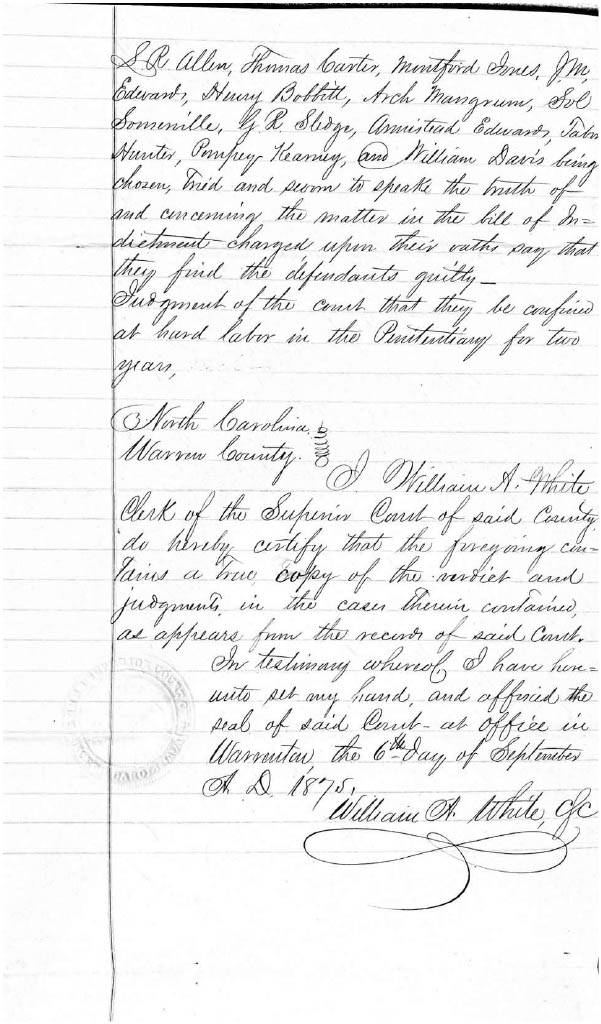 S. R. Allen, Thomas Carter, Montford Jones, J. M.
Edwards, Henry Bobbitt, Arch Mangrum, Sol
Somerville, G. R. Sledge, Armistead Edwards, Tabn
Hunter, Pompey Kearney, and William Davis being
chosen, Tried and sworn to speake the truth of
and concerning the matter in the bill of In=
dictment charged upon their oaths say that
they find the defendants guilty—
Judgment of the court that they be confined
at hard labor in the Penitentiary for two
years,
North Carolina
Warren County.
I William A. White
Clerk of the Superior Court of said County
do hereby certify that the foregoing con-
tains a true copy of the verdict and
judgments, in the cases therein contained,
as appears from the records of said Court.
In testimony whereof, I have here-
unto set my hand, and affixed the
seal of said Court at office in
Warrenton, the 6th day of September
A. D. 1875.
William A. White, CSC